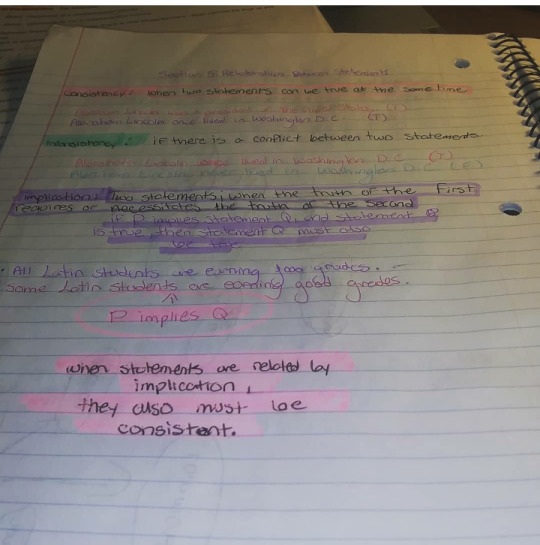 Section 5: Relationships Between Statements
Consistency: when two statements can we true at the same time.
Abraham Lincoln was a president of the United States (T)
Abraham Lincoln once lived in Washington D.C (T)
Inconsistency: if there is a conflict between two statements.
Abraham Lincoln once lived in Washington D.C (T)
Abraham Lincoln never lived in Washington D.C (F)
Implication: Two statements, when the truth of the First
requires or necessitates the truth of the second
if P implies statement Q, and statement
is true, then statement Q must also
be true
· All Latin students are earning good grades.
Some Latin students are earning good grades.
P implies Q
when statements are related by
implication,
they also must be
consistent.